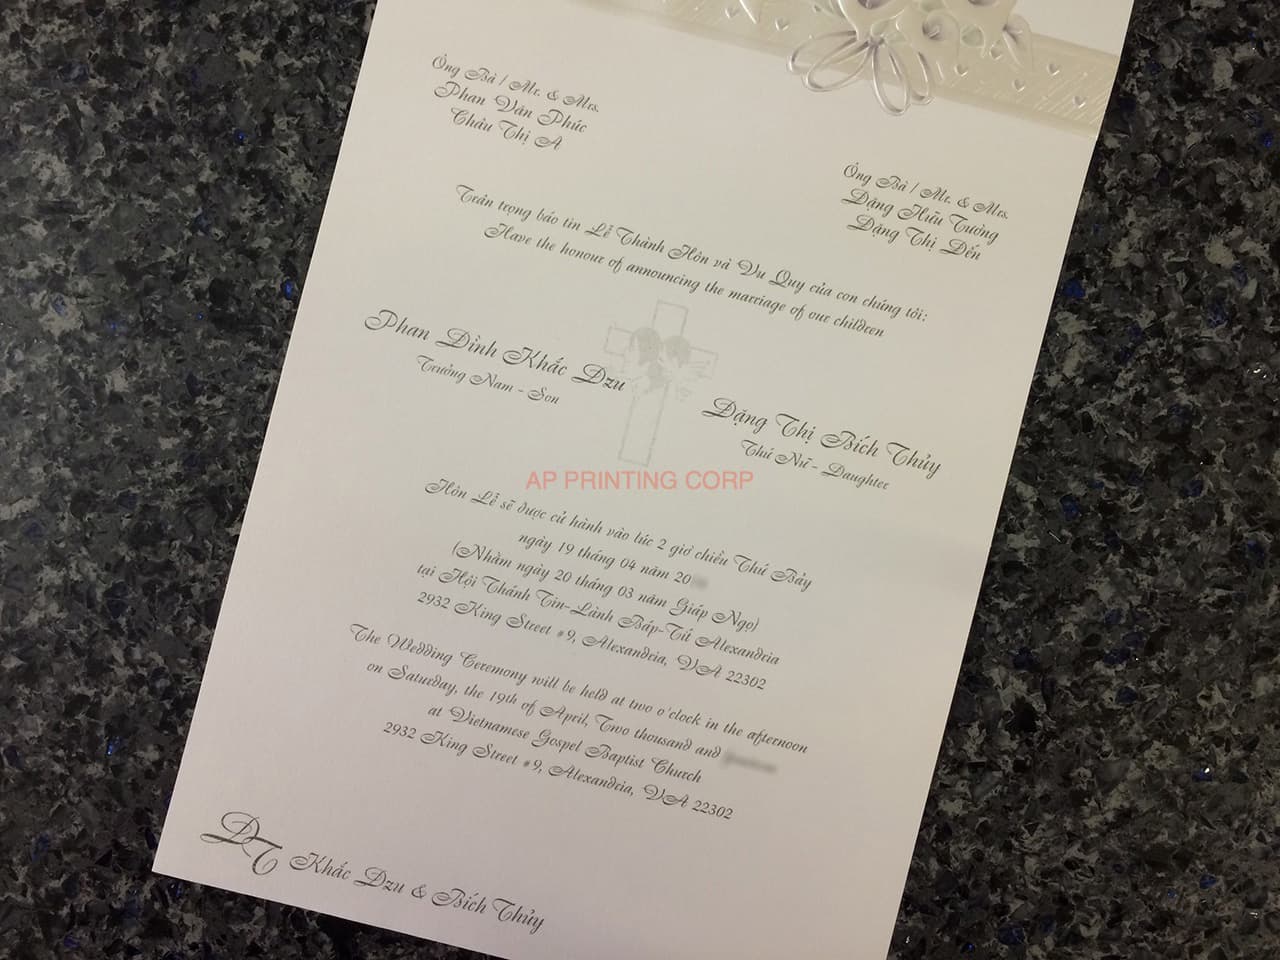 Ông Bà / Mr. & Mrs.
Phan Văn Phúc
Châu Thị A
Ông Bà / Mr. & Mrs.
Đặng Hữu Tường
Đặng Thị Đến
Trân trọng báo tin Lễ Thành Hôn và Vu Quy của con chúng tôi:
Have the honour of announcing the marriage of our children
Phan Đình Khắc Dzu
Trưởng Nam - Son
Đặng Thị Bích Thủy
Thứ Nữ - Daughter
AP PRINTING CORP
Hôn Lễ sẽ được cử hành vào lúc 2 giờ chiều Thứ Bảy
ngày 19 tháng 04 năm 20
(Nhằm ngày 20 tháng 03 năm Giáp Ngọ)
tại Hội Thánh Tin-Lành Báp-Tít Alexandria
2932 King Street #9, Alexandria, VA 22302
The Wedding Ceremony will be held at two o'clock in the afternoon
on Saturday, the 19th of April, Two thousand and
at Vietnamese Gospel Baptist Church
2932 King Street #9, Alexandria, VA 22302
DT Khắc Dzu & Bích Thủy